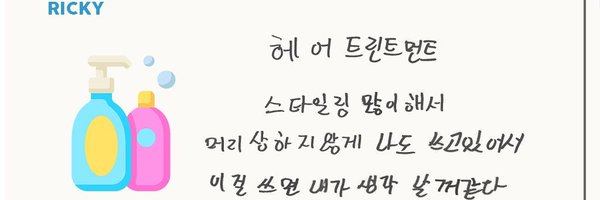 RICKY
헤어 트린트먼트
스타일링 많이해서
머리 상하지않게 나도 쓰고있어서
이걸 쓰면 내가 생각 날꺼같다